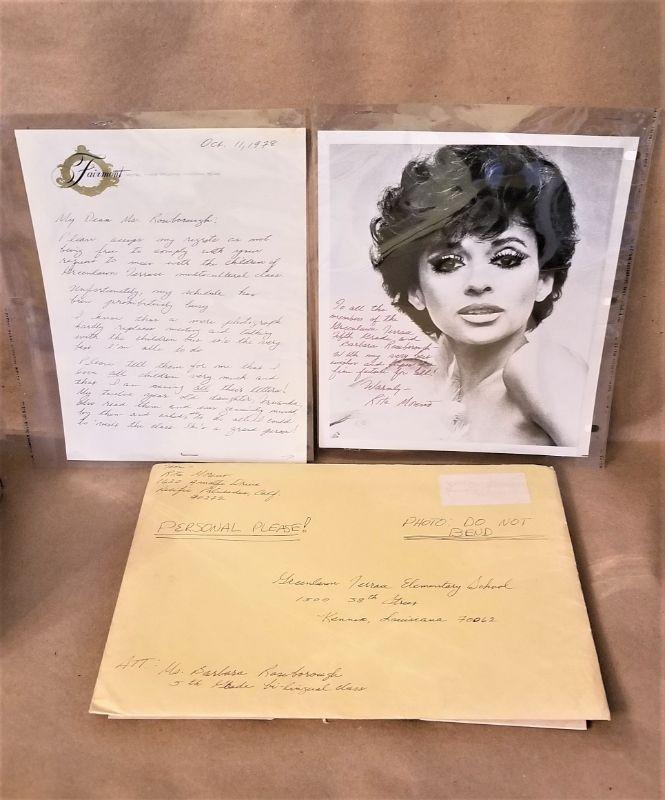 Fairmont
Oct. 11, 1978
My Dear Ms. Roseborough:
Please accept my regrets at not
being free to comply with your
request to meet with the children of
Greenlawn Terrace multicultural class.
Unfortunately, my schedule has
been prohibitively busy
I know that a mere photograph
hardly replaces meeting and talking
with the children but it's the very
best I'm able to do
Please tell them for me that I
love all children very much and
that I am saving all their letters!
My twelve year old daughter, Fernanda,
also read them and was genuinely moved
by them and asked to be able could
to meet the class. She's a great person!
To all the
members of the
Greenlawn Terrace
Fifth Grade and
Barbara Roseborough
with my very best
for all!
Warmly -
Rita Moreno
Rita Moreno
Pacific Palisades, Calif
90272
PERSONAL PLEASE!
PHOTO: DO NOT
BEND
Greenlawn Terrace Elementary School
1500 38th Street
Kenner, Louisiana 70062
ATT: Ms. Barbara Roseborough
5th Grade bi-lingual class